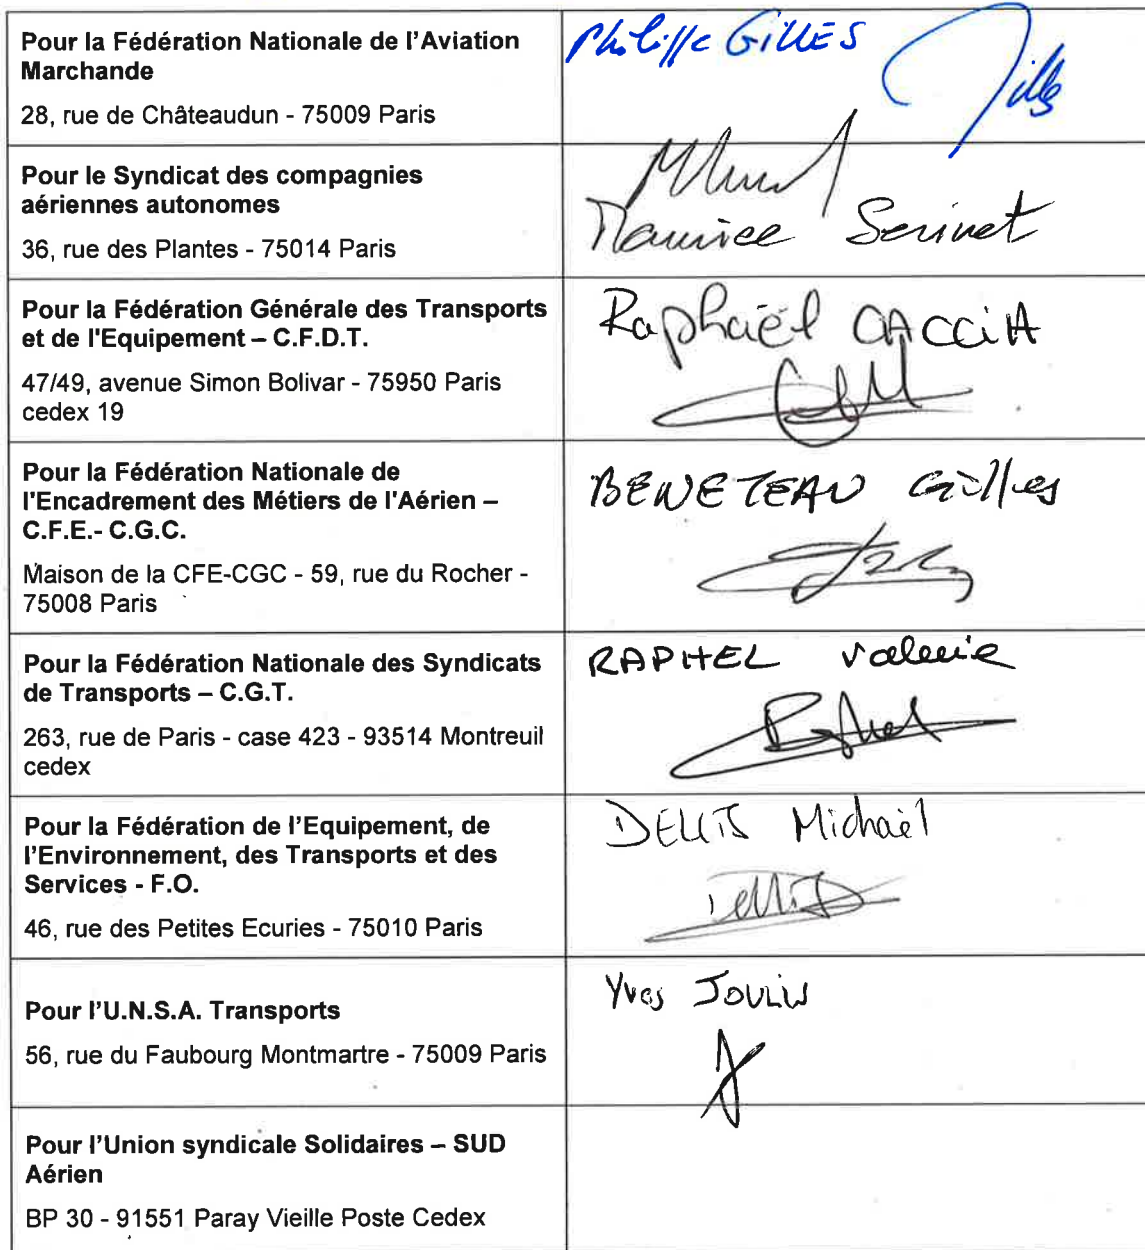 Pour la Fédération Nationale de l'Aviation
Marchande
28, rue de Châteaudun - 75009 Paris
Philippe GILLES
Gilles
Pour le Syndicat des compagnies
aériennes autonomes
36, rue des Plantes - 75014 Paris
Maurice Serinet
Pour la Fédération Générale des Transports
et de l'Equipement – C.F.D.T.
47/49, avenue Simon Bolivar - 75950 Paris
cedex 19
Raphaël CACCIA
Pour la Fédération Nationale de
l'Encadrement des Métiers de l'Aérien –
C.F.E.- C.G.C.
Maison de la CFE-CGC - 59, rue du Rocher -
75008 Paris
BENETEAU Gilles
Pour la Fédération Nationale des Syndicats
de Transports – C.G.T.
263, rue de Paris - case 423 - 93514 Montreuil
cedex
RAPHEL Valerie
Pour la Fédération de l'Equipement, de
l'Environnement, des Transports et des
Services - F.O.
46, rue des Petites Ecuries - 75010 Paris
Michaël
Pour l'U.N.S.A. Transports
56, rue du Faubourg Montmartre - 75009 Paris
Yves JOULIN
Pour l'Union syndicale Solidaires – SUD
Aérien
BP 30 - 91551 Paray Vieille Poste Cedex